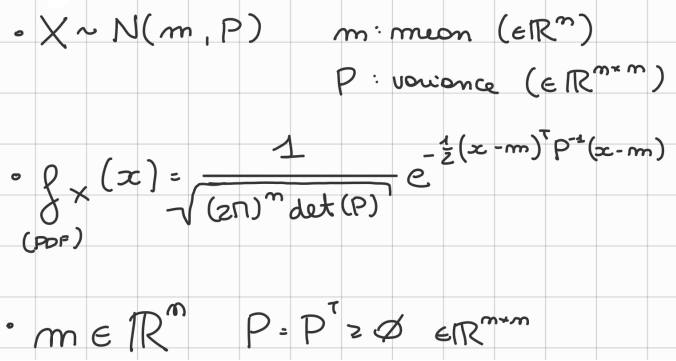 • X ~ N(m, P)    m: mean (∈ℝⁿ)
P: variance (∈ℝⁿˣⁿ)
• f_X(x) = 1 / √((2π)ⁿ det(P)) e^(-½(x-m)ᵀP⁻¹(x-m))
(PDF)
• m ∈ ℝⁿ    P = Pᵀ ≥ ∅ ∈ℝⁿˣⁿ